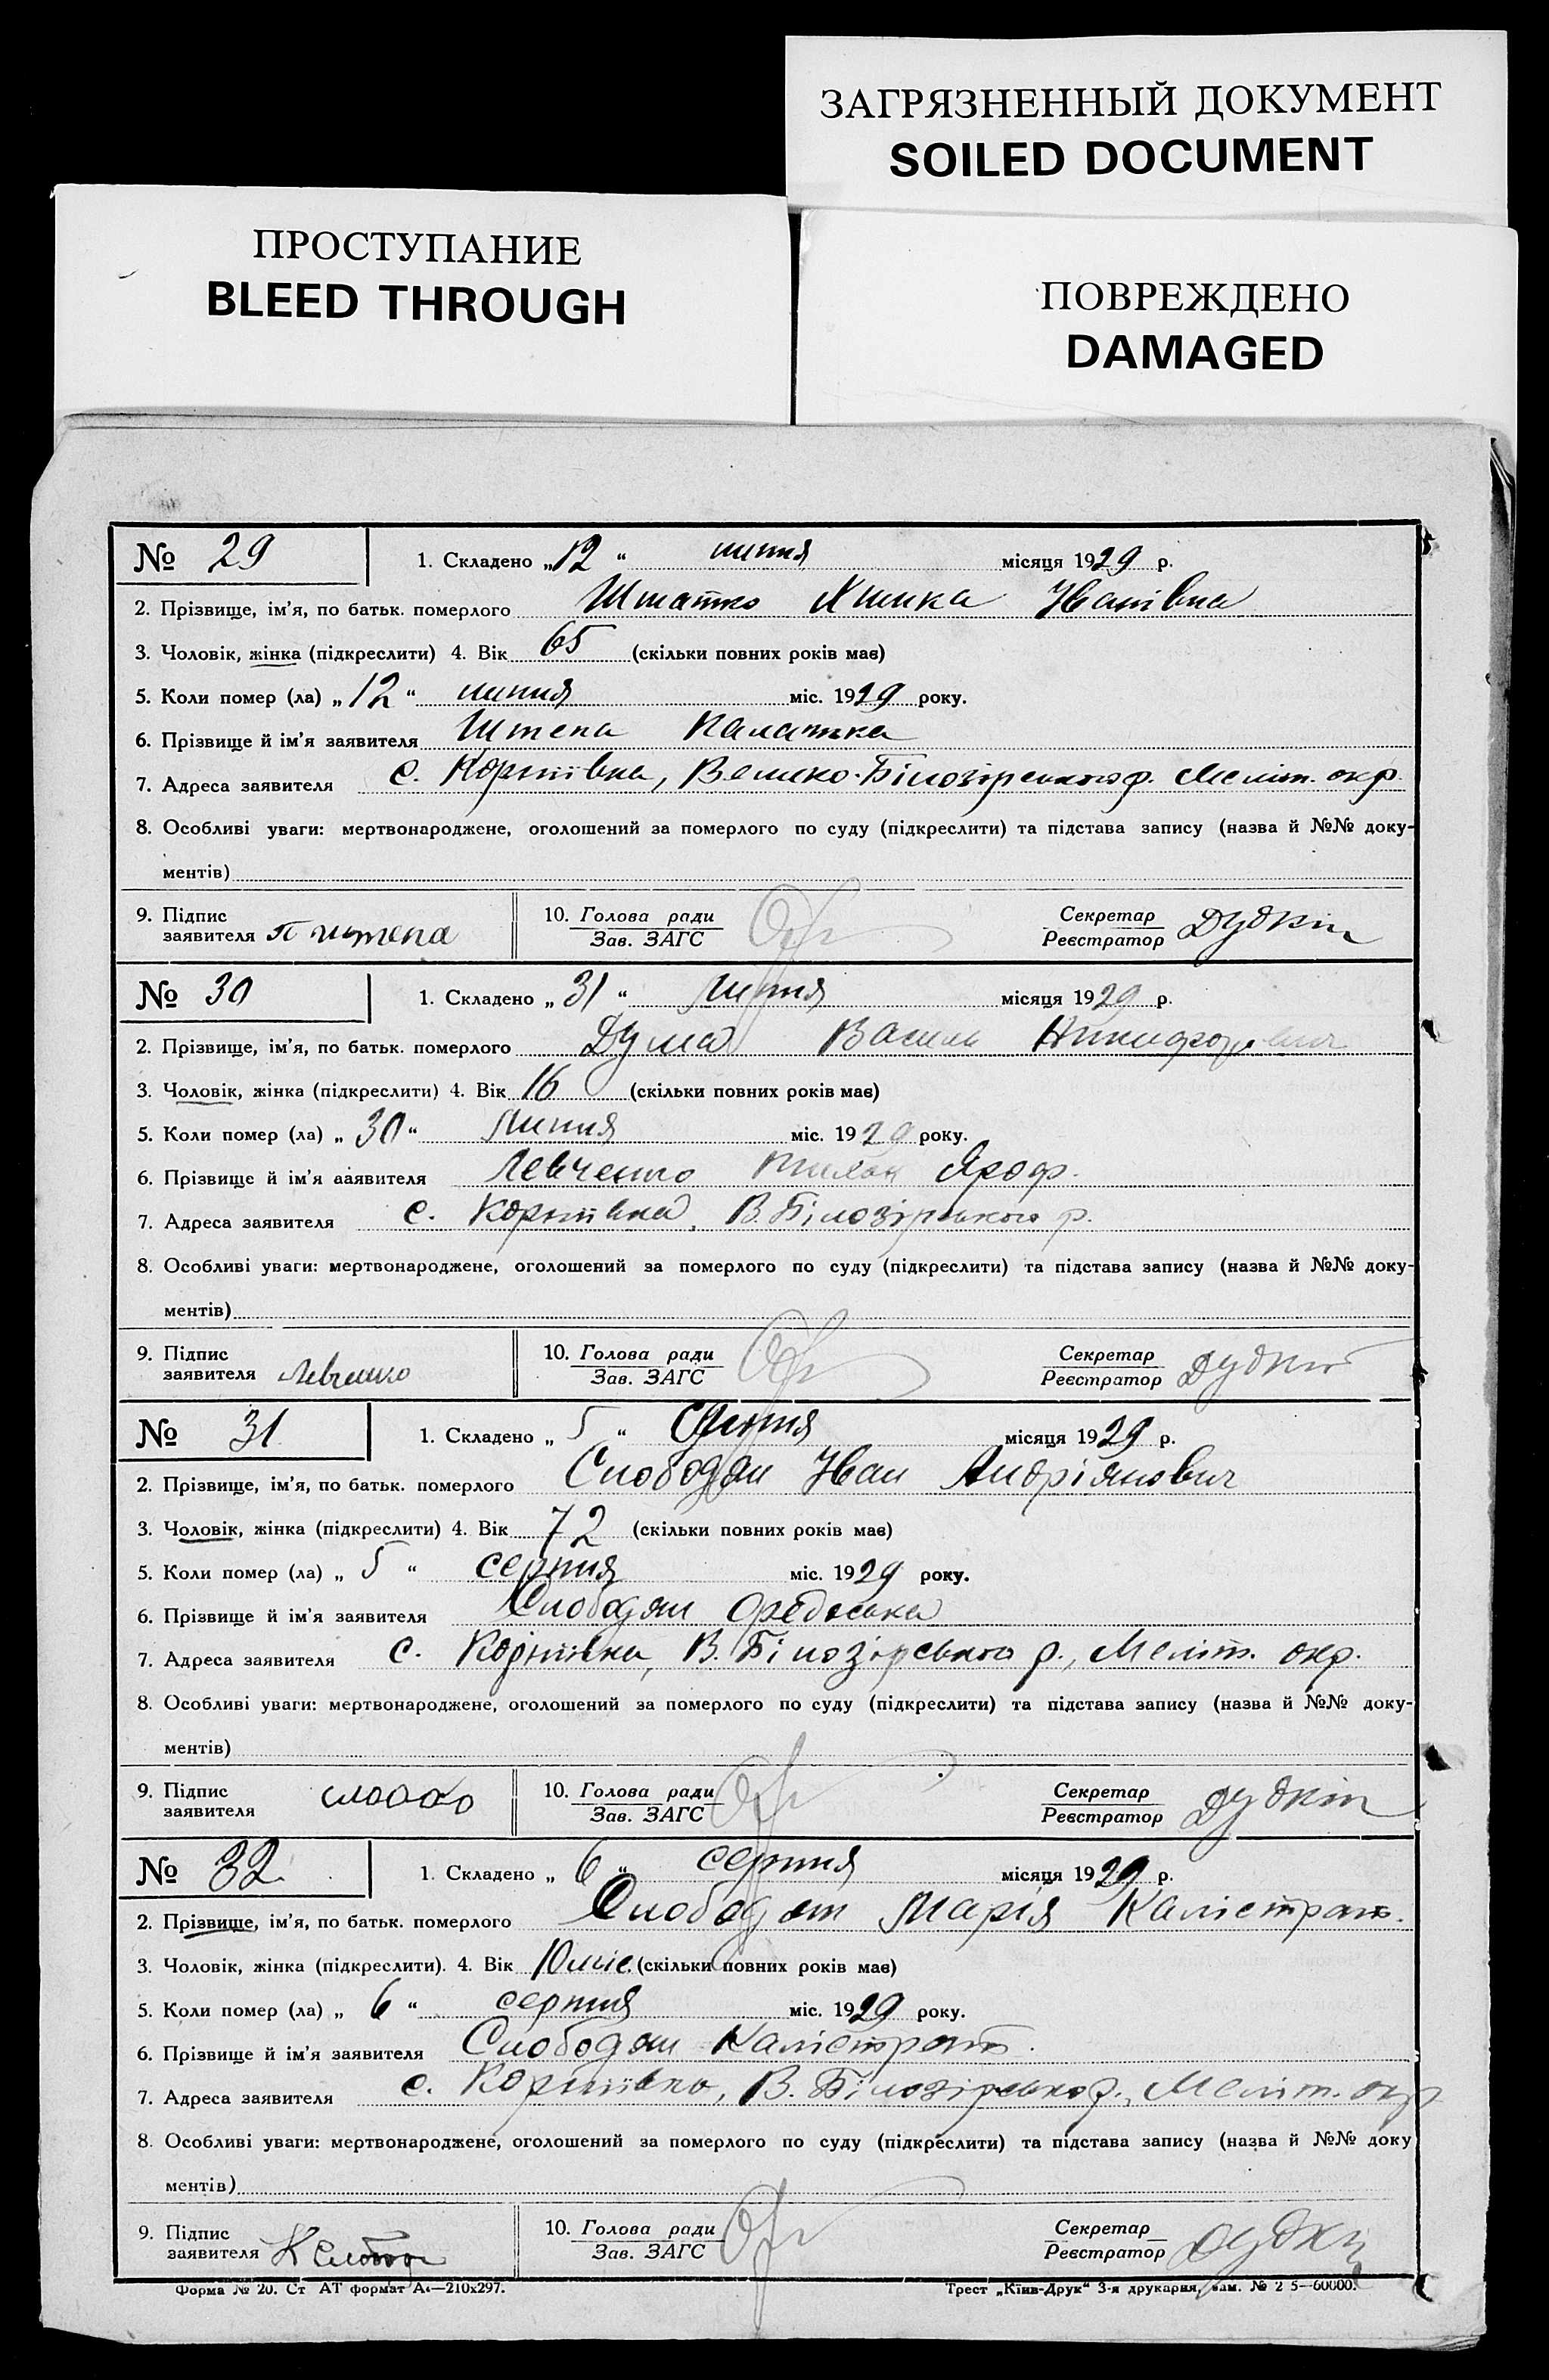 ЗАГРЯЗНЕННЫЙ ДОКУМЕНТ
SOILED DOCUMENT
ПРОСТУПАНИЕ
BLEED THROUGH
ПОВРЕЖДЕНО
DAMAGED
№ 29 1. Складено „12“ липня місяця 1929 р.
2. Прізвище, ім'я, по батьк. померлого Івановна
3. Чоловік, жінка (підкреслити) 4. Вік 65 (скільки повних років має)
5. Коли помер (ла) „12“ липня міс. 1929 року.
6. Прізвище й ім'я заявителя Штепа
7. Адреса заявителя с. Корніївка, Велико-Білозірського р. Меліт. окр.
8. Особливі уваги: мертвонароджене, оголошений за померлого по суду (підкреслити) та підстава запису (назва й №№ доку-
ментів)
9. Підпис заявителя П Штепа 10. Голова ради Зав. ЗАГС Секретар Реєстратор Дудкін
№ 30 1. Складено „31“ липня місяця 1929 р.
2. Прізвище, ім'я, по батьк. померлого Дума Василь Никифорович
3. Чоловік, жінка (підкреслити) 4. Вік 16 (скільки повних років має)
5. Коли помер (ла) „30“ липня міс. 1929 року.
6. Прізвище й ім'я заявителя Левченко
7. Адреса заявителя с. Корніївка, В. Білозірського р.
8. Особливі уваги: мертвонароджене, оголошений за померлого по суду (підкреслити) та підстава запису (назва й №№ доку-
ментів)
9. Підпис заявителя Левченко 10. Голова ради Зав. ЗАГС Секретар Реєстратор Дудкін
№ 31 1. Складено „5“ серпня місяця 1929 р.
2. Прізвище, ім'я, по батьк. померлого Слободян Іван Андріянович
3. Чоловік, жінка (підкреслити) 4. Вік 72 (скільки повних років має)
5. Коли помер (ла) „5“ серпня міс. 1929 року.
6. Прізвище й ім'я заявителя Слободян
7. Адреса заявителя с. Корніївка, В. Білозірського р., Меліт. окр.
8. Особливі уваги: мертвонароджене, оголошений за померлого по суду (підкреслити) та підстава запису (назва й №№ доку-
ментів)
9. Підпис заявителя 10. Голова ради Зав. ЗАГС Секретар Реєстратор Дудкін
№ 32 1. Складено „6“ серпня місяця 1929 р.
2. Прізвище, ім'я, по батьк. померлого Слободян Марія Калістрат.
3. Чоловік, жінка (підкреслити). 4. Вік 10 міс. (скільки повних років має)
5. Коли помер (ла) „6“ серпня міс. 1929 року.
6. Прізвище й ім'я заявителя Слободян Калістрат.
7. Адреса заявителя с. Корніївка, В. Білозірсько р., Меліт. окр
8. Особливі уваги: мертвонароджене, оголошений за померлого по суду (підкреслити) та підстава запису (назва й №№ доку
ментів)
9. Підпис заявителя 10. Голова ради Зав. ЗАГС Секретар Реєстратор
Форма № 20. Ст АТ формат А4—210х297. Трест „Київ-Друк“ 3-я друкарня, зам. № 2 5—60000.